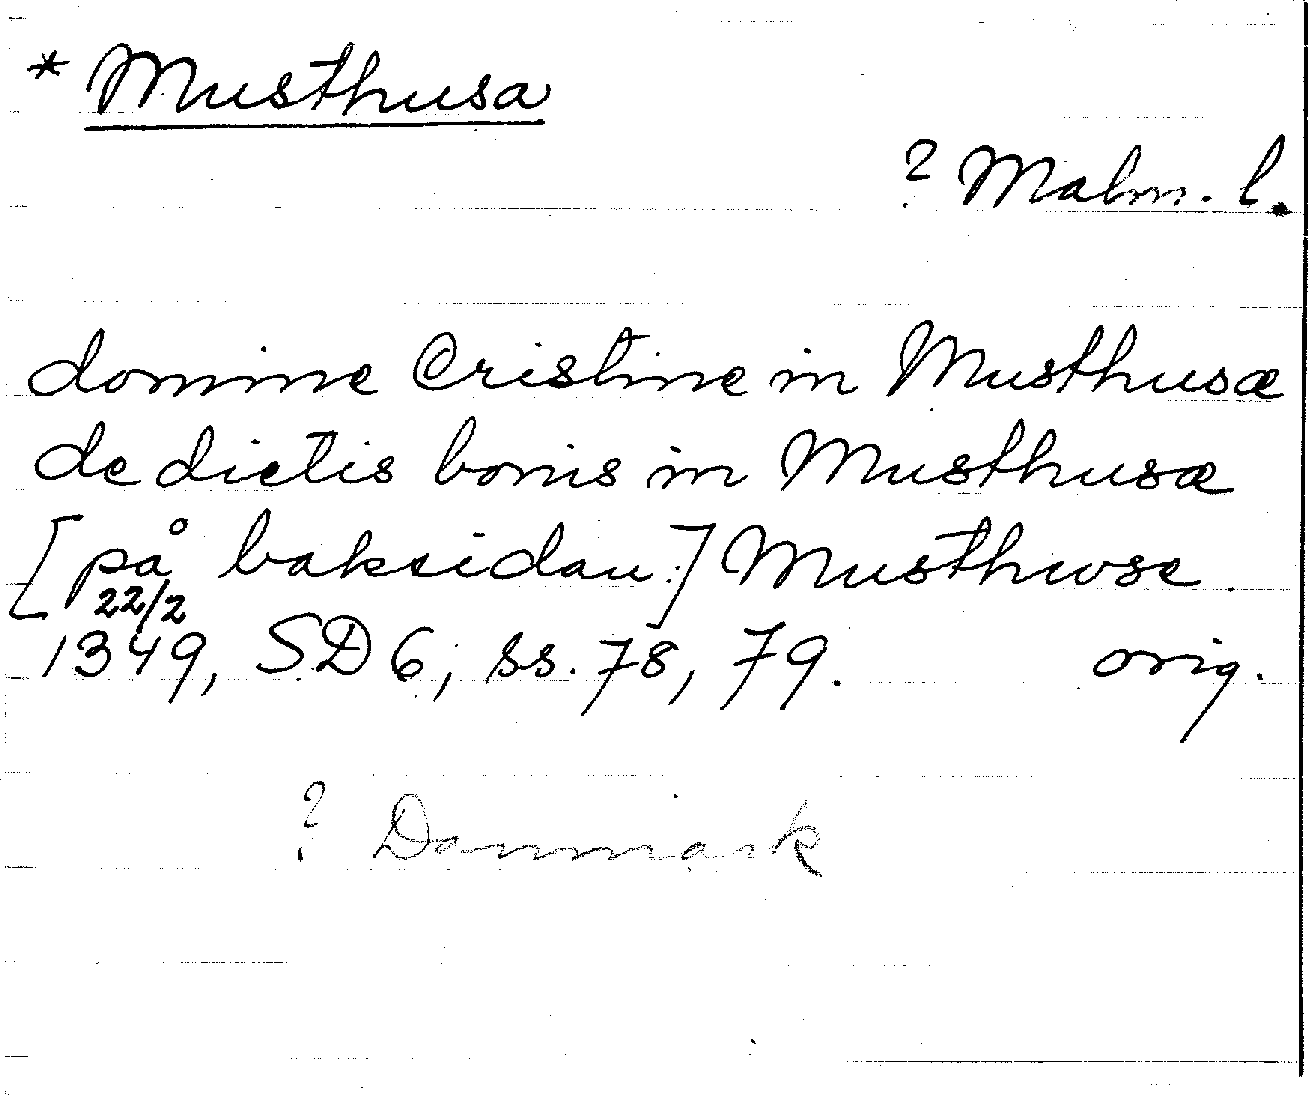 * Musthusa
? Malm. l.
domine Cristine in Musthusæ
de dictis bonis in Musthusæ
[på baksidan:] Musthwse
22/2
1349, SD 6, ss. 78, 79. orig.
? Danmark